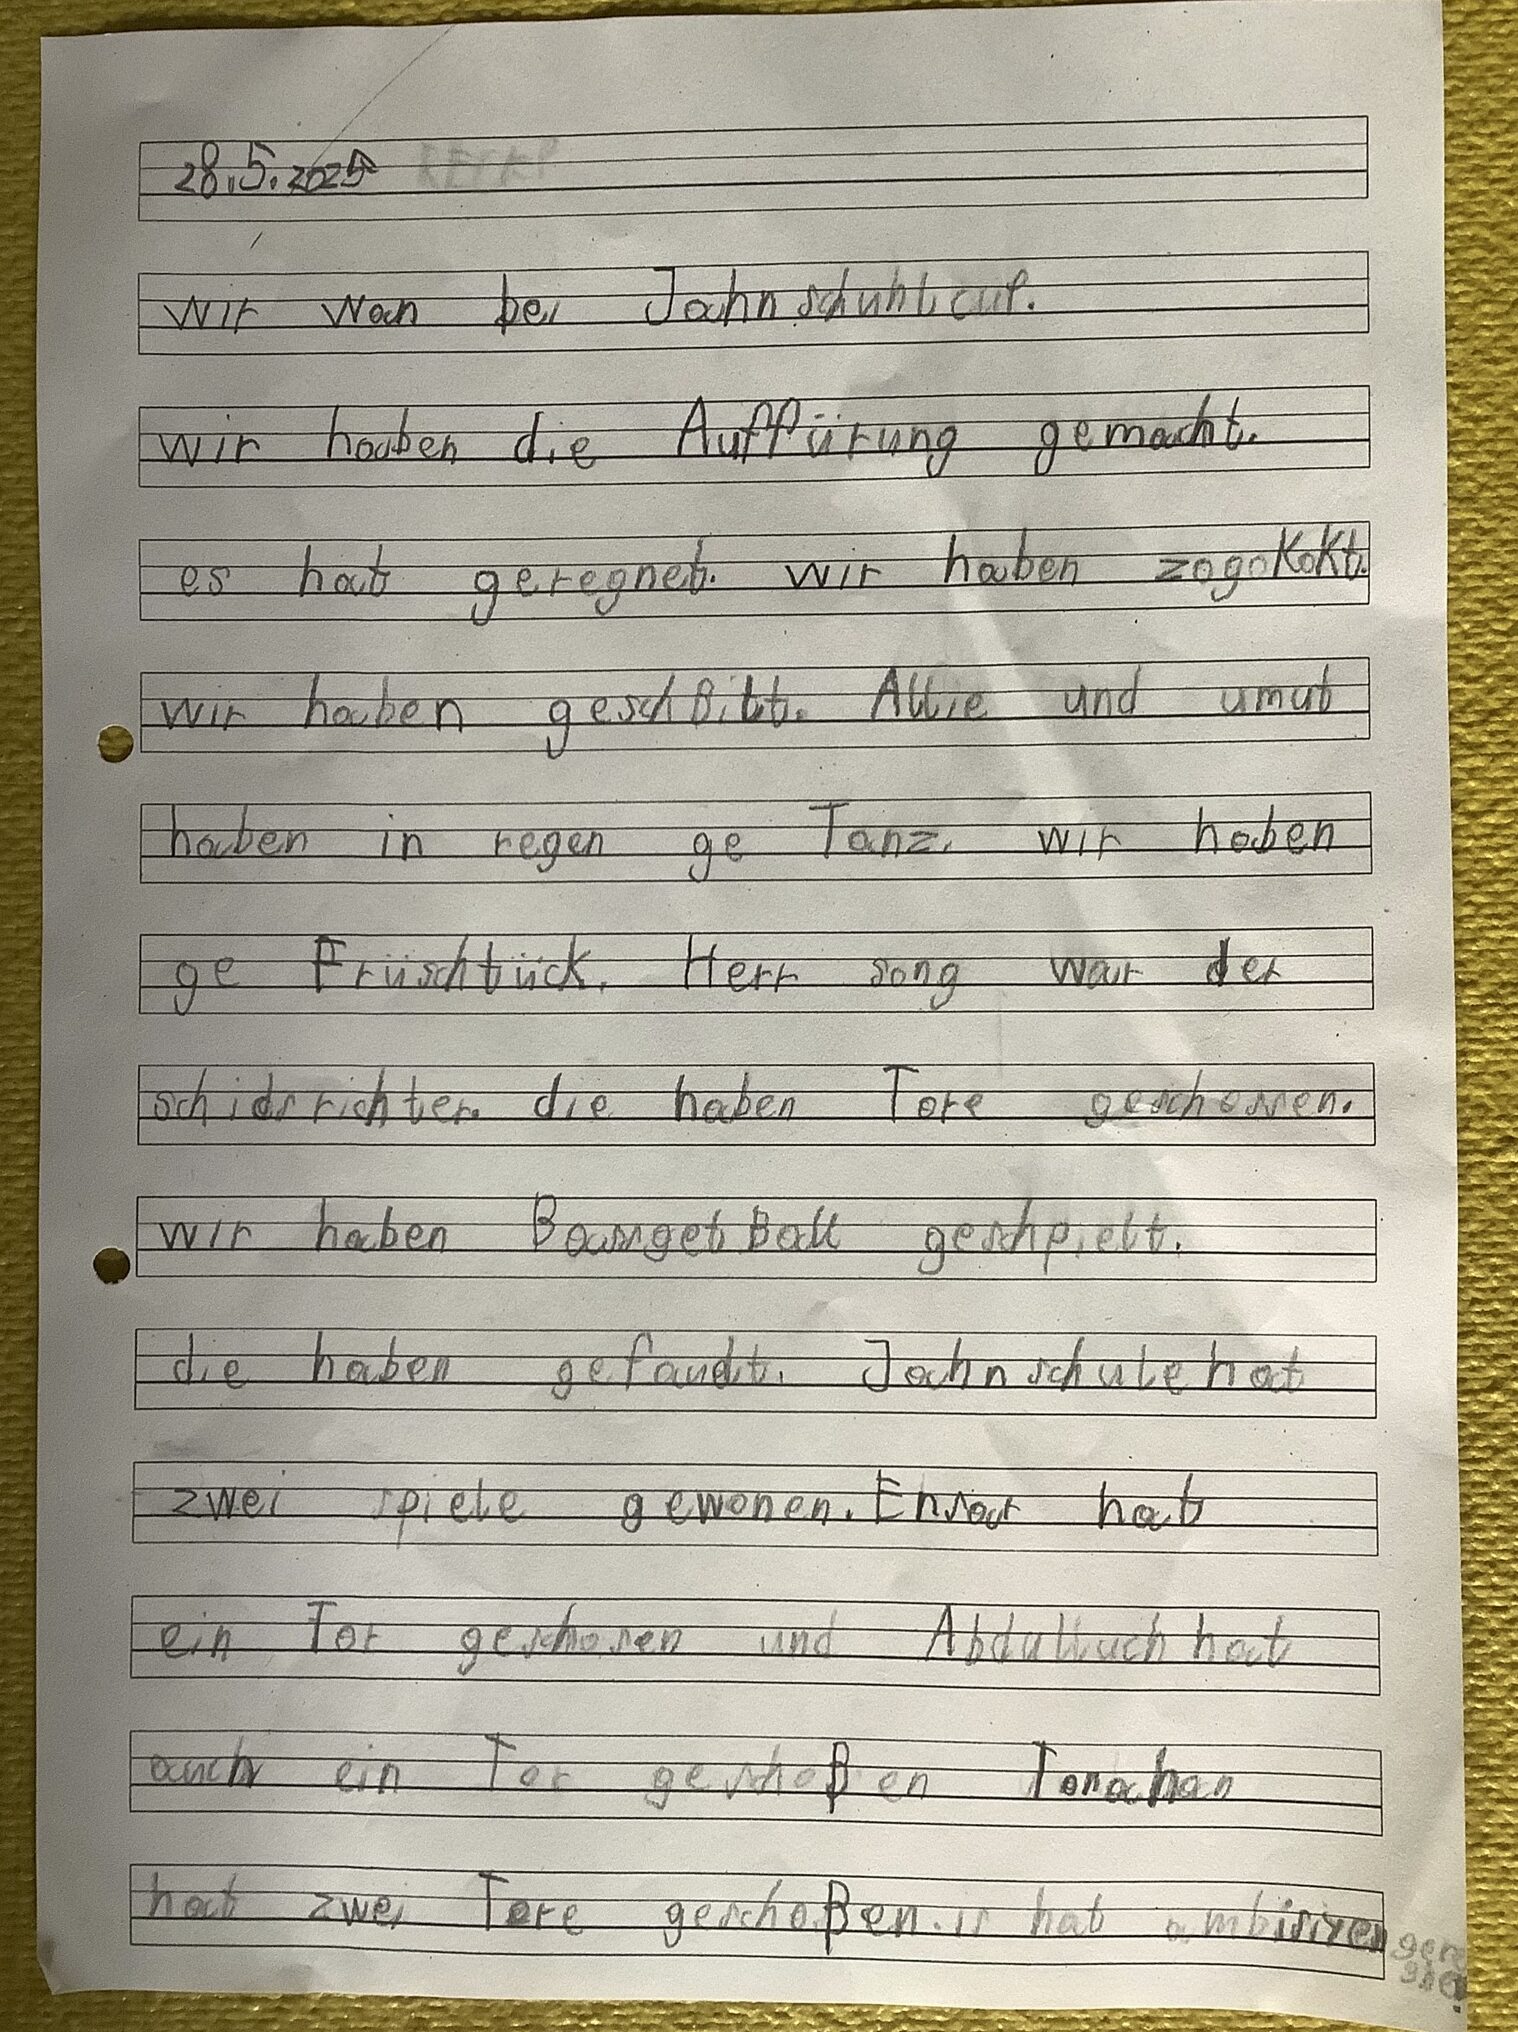 28.5.2025
wir wan bei Jahnschuhlcup.
wir haben die Auffürung gemacht.
es hat geregnet. wir haben zogokokt.
wir haben geschßilt. Allie und umut
haben in regen ge Tanz. wir haben
ge Früschtück. Herr song war der
schidsrichter. die haben Tore geschossen.
wir haben BassgetBall geschpielt.
die haben gefault. Jahnschule hat
zwei spiele gewonen. Ensar hat
ein Tor geschosen und Abdulluch hat
auch ein Tor geschoßen Torachan
hat zwei Tore geschoßen. is hat